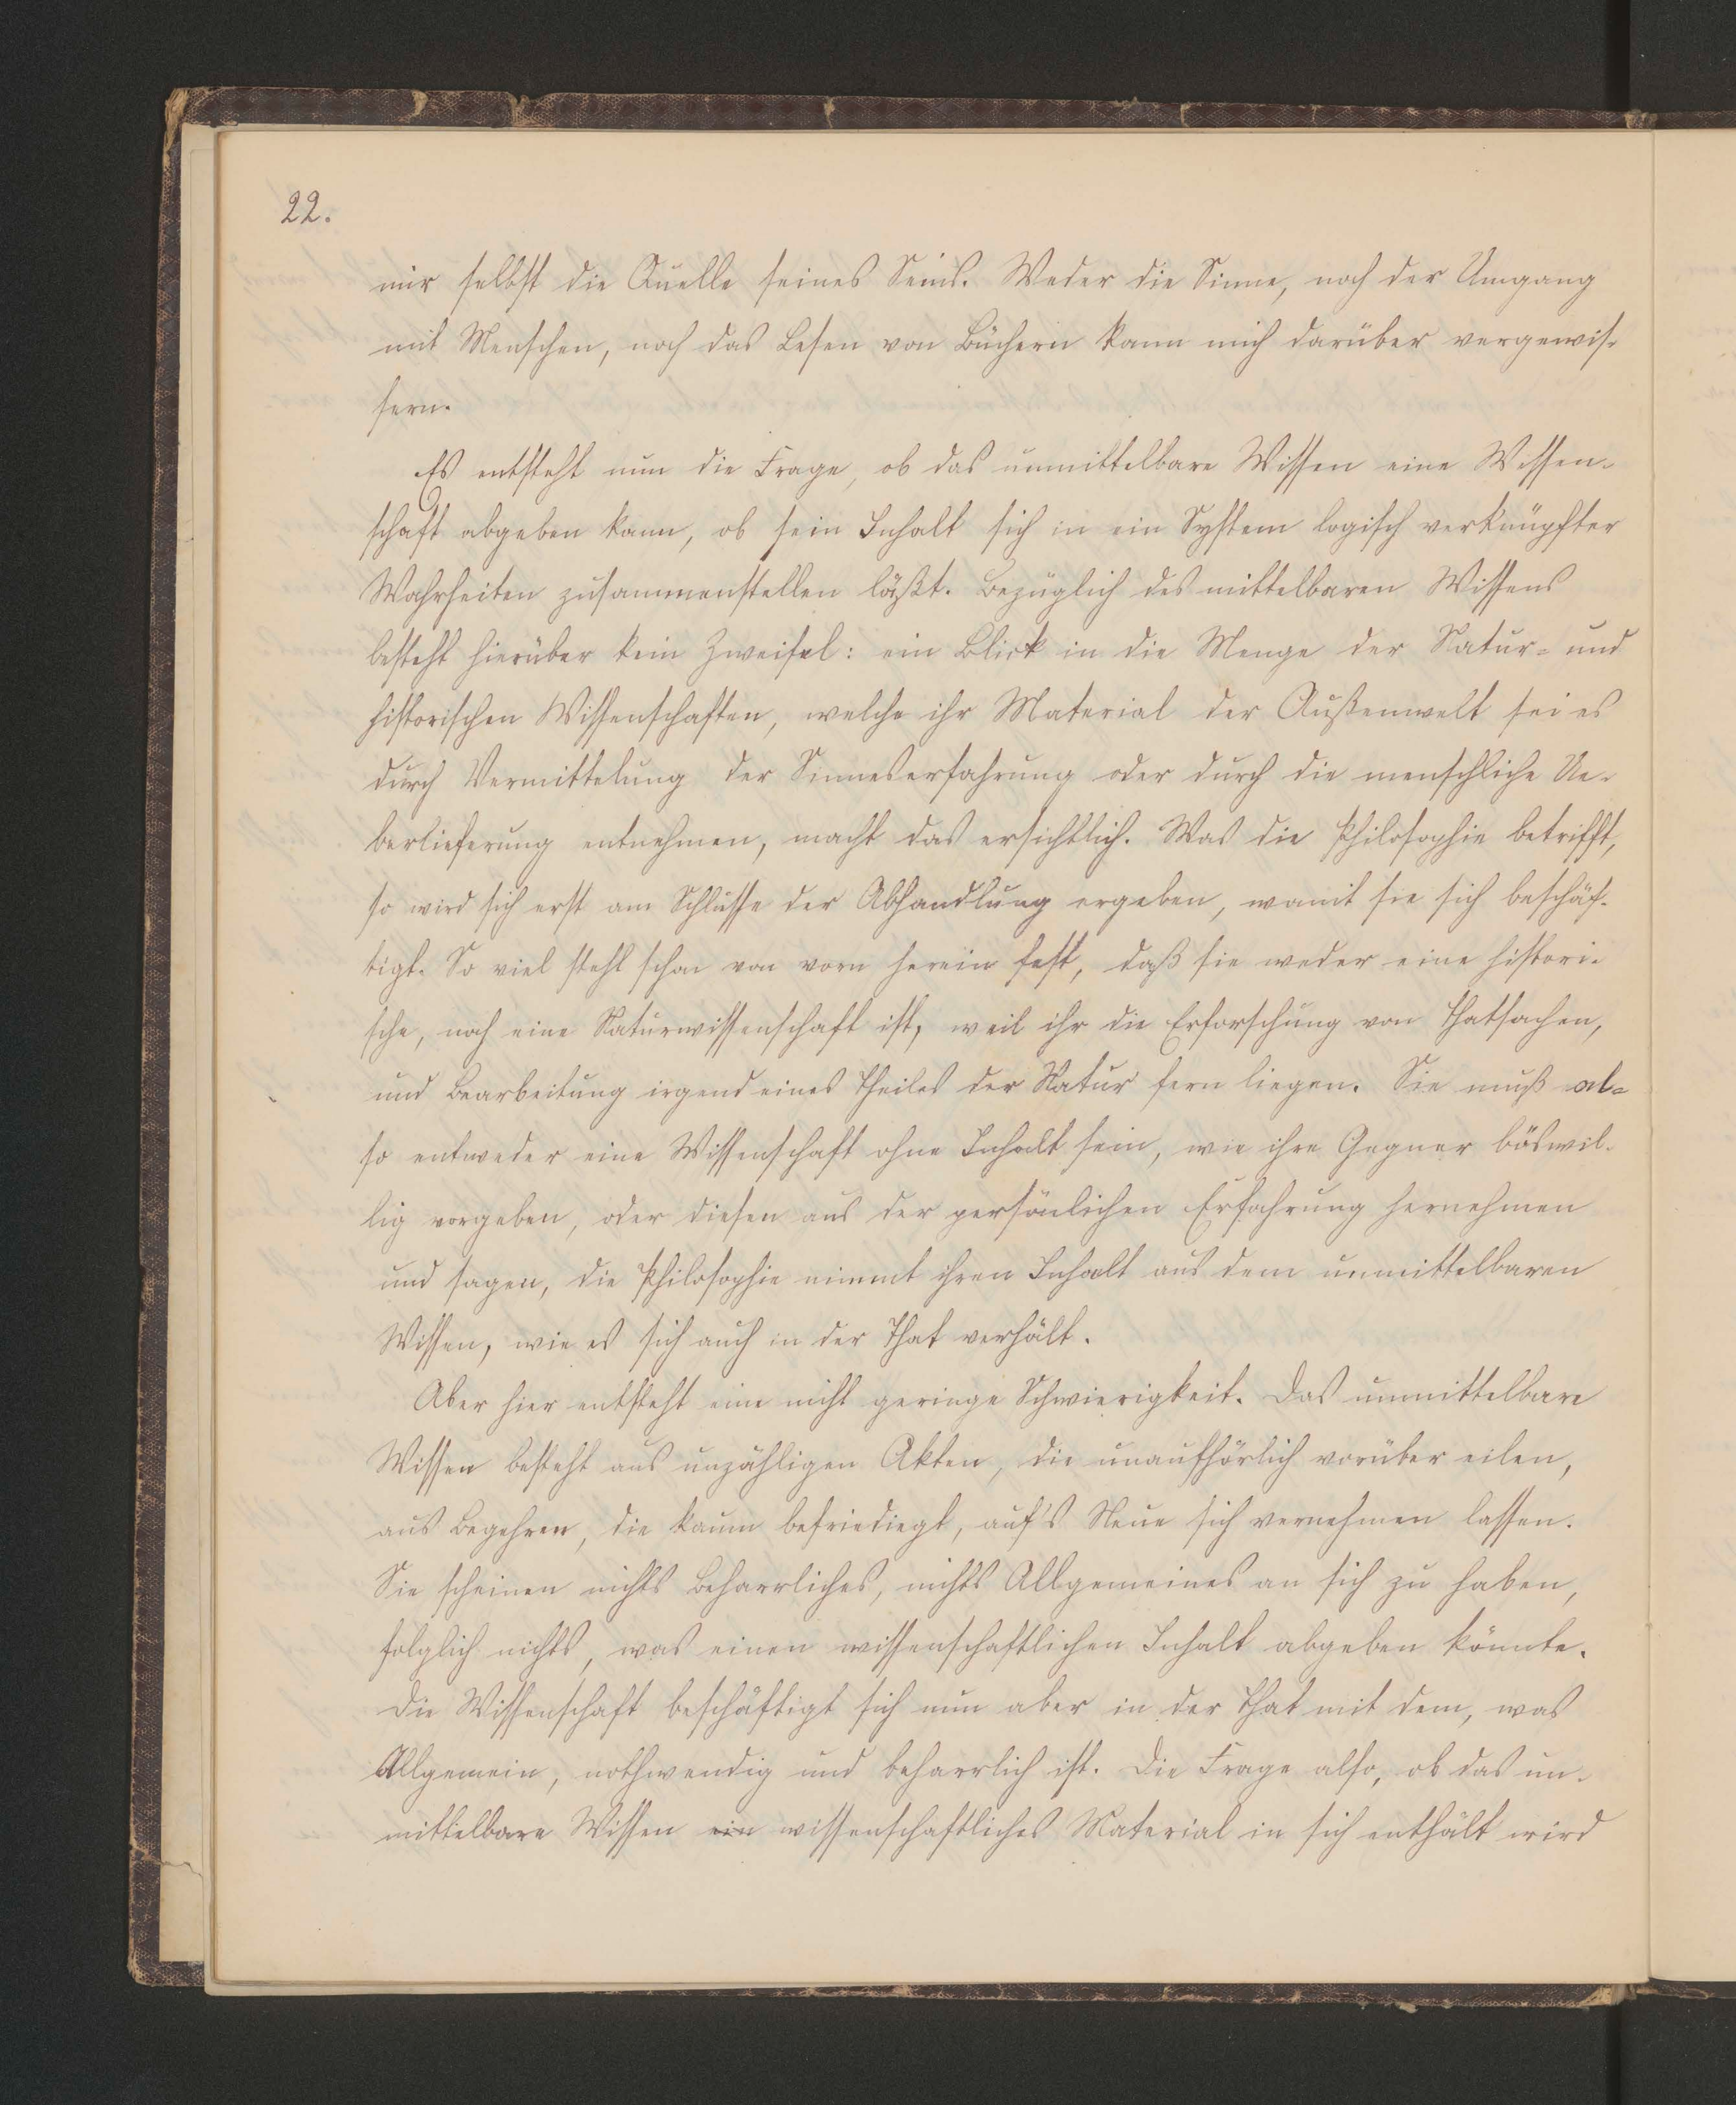 22.
mir selbst die Quelle seines Seins. Weder die Sinne, noch der Umgang
mit Menschen, noch das Lesen von Büchern kann mich darüber vergewis-
sern.
Es entsteht nun die Frage, ob das unmittelbare Wissen eine Wissen-
schaft abgeben kann, ob sein Inhalt sich in ein System logisch verknüpfter
Wahrheiten zusammenstellen läßt. Bezüglich des mittelbaren Wissens
besteht hierüber kein Zweifel: ein Blick in die Menge der Natur- und
historischen Wissenschaften, welche ihr Material der Außenwelt sei es
durch Vermittelung der Sinneserfahrung oder durch die menschliche Ue-
berlieferung entnehmen, macht das ersichtlich. Was die Philosophie betrifft,
so wird sich erst am Schlusse der Abhandlung ergeben, womit sie sich beschäf-
tigt. So viel steht schon von vorn herein fest, daß sie weder eine histori-
sche, noch eine Naturwissenschaft ist, weil ihr die Erforschung von Thatsachen,
und Bearbeitung irgend eines Theiles der Natur fern liegen. Sie muß al-
so entweder eine Wissenschaft ohne Inhalt sein, wie ihre Gegner böswil-
lig vorgeben, oder diesen aus der persönlichen Erfahrung hernehmen
und sagen, die Philosophie nimmt ihren Inhalt aus dem unmittelbaren
Wissen, wie es sich auch in der That verhält.
Aber hier entsteht eine nicht geringe Schwierigkeit. Das unmittelbare
Wissen besteht aus unzähligen Akten, die unaufhörlich vorüber eilen,
aus Begehren, die kaum befriediegt, auf's Neue sich vernehmen lassen.
Sie scheinen nichts Beharrliches, nichts Allgemeines an sich zu haben,
folglich nichts, was einen wissenschaftlichen Inhalt abgeben könnte.
Die Wissenschaft beschäftigt sich nun aber in der That mit dem, was
Allgemein, nothwendig und beharrlich ist. Die Frage also, ob das un-
mittelbare Wissen ein wissenschaftliches Material in sich enthält wird